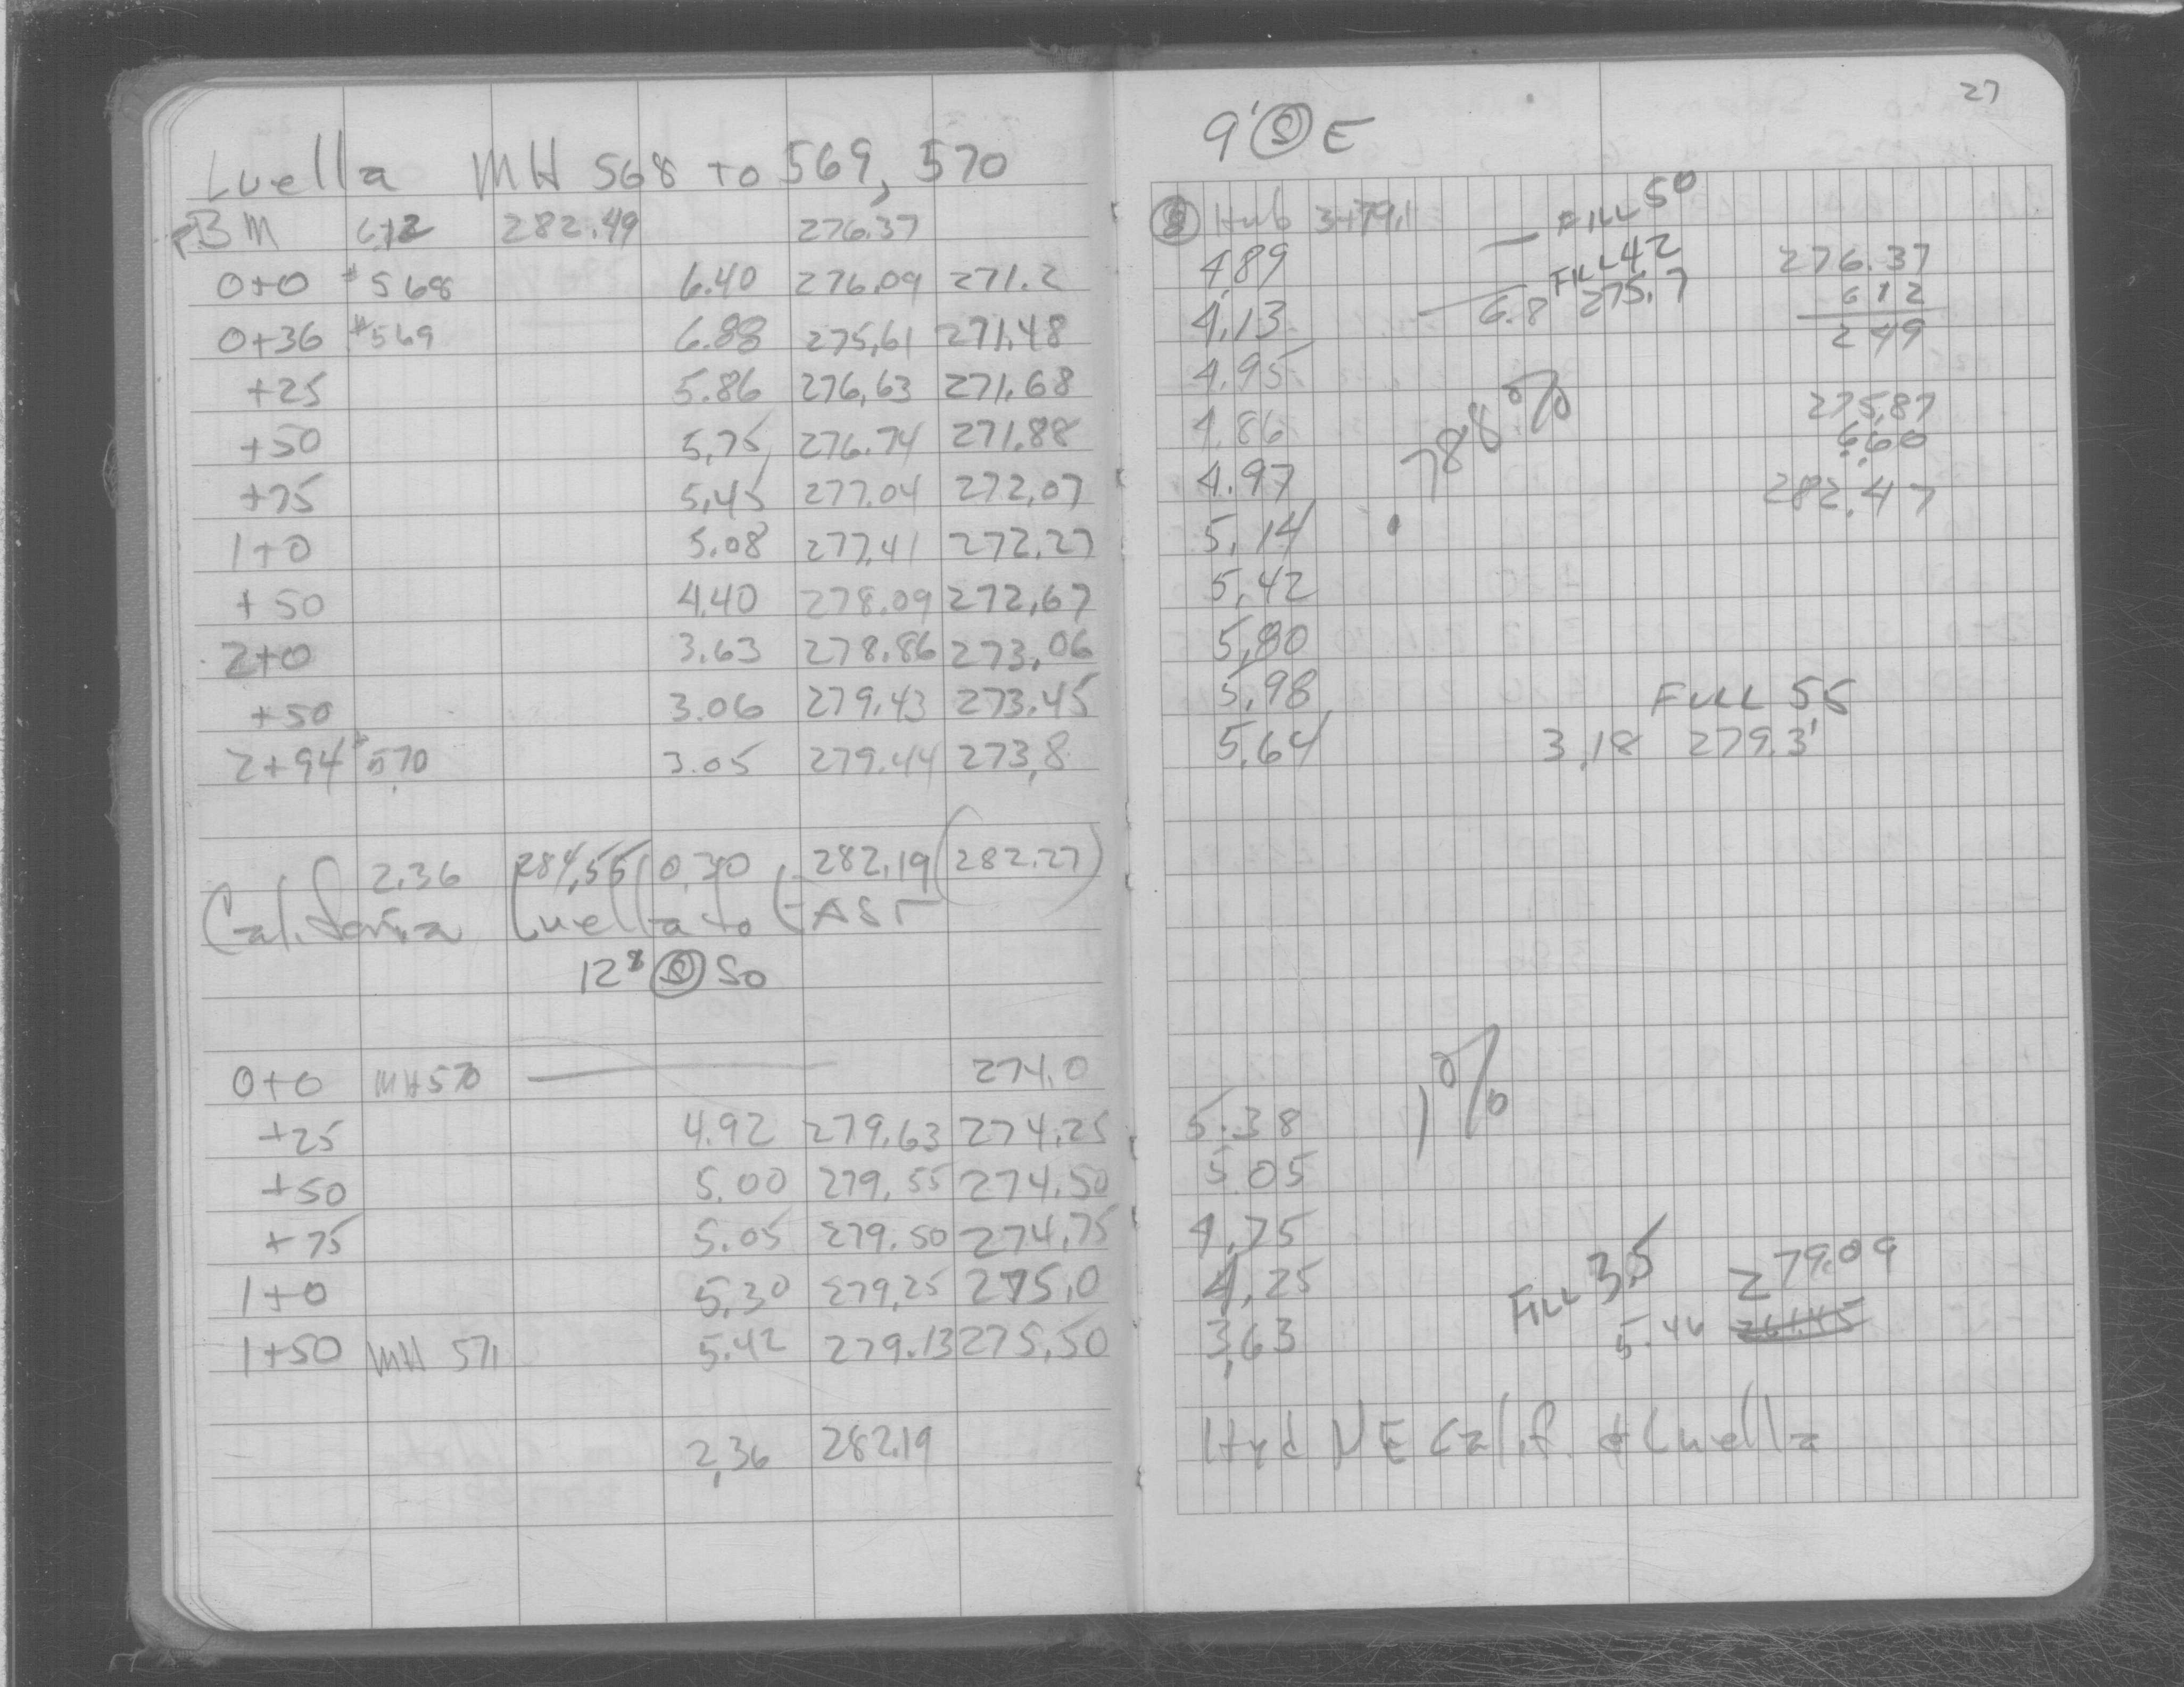 27
Luella MH 568 to 569, 570
BM 6.12 282.49 276.37
0+0 #568 6.40 276.09 271.2
0+36 #569 6.88 275.61 271.48
+25 5.86 276.63 271.68
+50 5.75 276.74 271.88
+75 5.45 277.04 272.07
1+0 5.08 277.41 272.27
+50 4.40 278.09 272.67
2+0 3.63 278.86 273.06
+50 3.06 279.43 273.45
2+94 #570 3.05 279.44 273.8
2.36 284.55 0.30 282.19 (282.27)
California Luella to EAST
12' Ⓢ So
0+0 MH 570 274.0
+25 4.92 279.63 274.25
+50 5.00 279.55 274.50
+75 5.05 279.50 274.75
1+0 5.30 279.25 275.0
1+50 MH 571 5.42 279.13 275.50
2.36 282.19
9' Ⓢ E
Hub 3+79.1 — FILL 5⁰
4.89 FILL 42 276.37
4.13 — 6.8 275.7 612
249
4.95
4.86 .788% 275.87
6.60
4.97 282.47
5.14
5.42
5.80
5.98 FULL 55
5.64 3.18 279.31
1%
5.38
5.05
4.75
4.25 FILL 3.5 279.09
3.63 5.46
Hyd NE Calif. & Luella